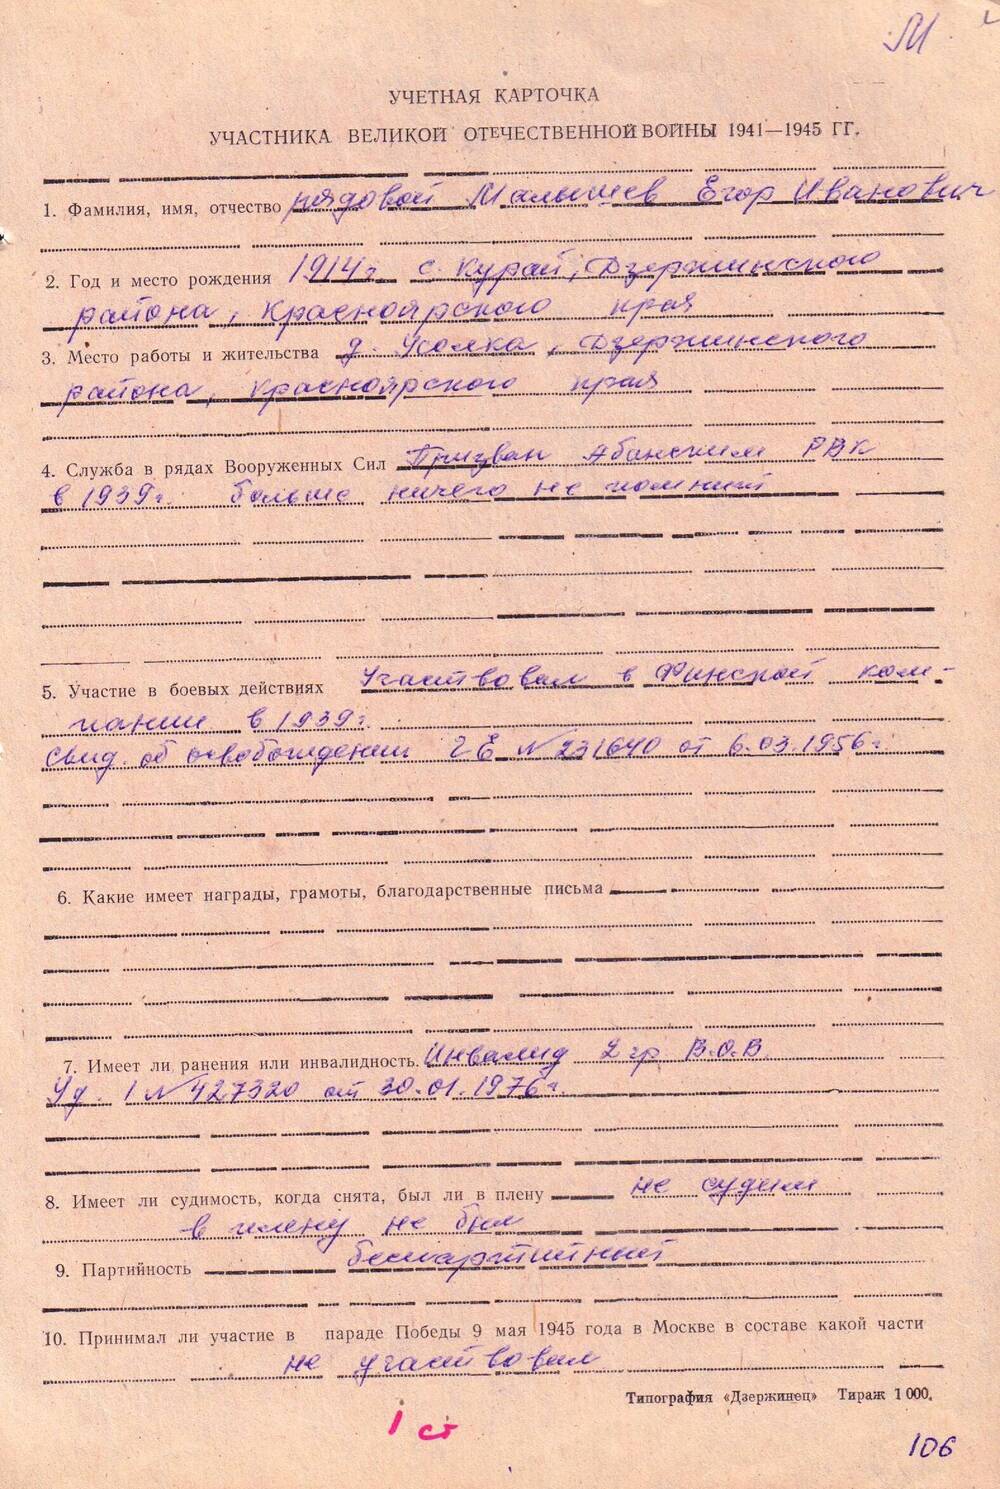 М
УЧЕТНАЯ КАРТОЧКА
УЧАСТНИКА ВЕЛИКОЙ ОТЕЧЕСТВЕННОЙ ВОЙНЫ 1941—1945 ГГ.
1. Фамилия, имя, отчество рядовой Малышев Егор Иванович
2. Год и место рождения 1914 г. с. Курай, Дзержинского
района, Красноярского края
3. Место работы и жительства д. Усолка, Дзержинского
района, Красноярского края
4. Служба в рядах Вооруженных Сил Призван Абанским РВК
в 1939 г. больше ничего не помнит
5. Участие в боевых действиях Участвовал в Финской ком-
пании в 1939 г.
свид. об освобождении ГЕ № 231640 от 6.03.1956 г.
6. Какие имеет награды, грамоты, благодарственные письма
7. Имеет ли ранения или инвалидность. Инвалид 2 гр В.О.В.
Уд. 1 № 427320 от 30.01.1976 г.
8. Имеет ли судимость, когда снята, был ли в плену не судим
в плену не был
9. Партийность беспартийный
10. Принимал ли участие в параде Победы 9 мая 1945 года в Москве в составе какой части
не участвовал
Типография «Дзержинец» Тираж 1 000.
1 ст
106